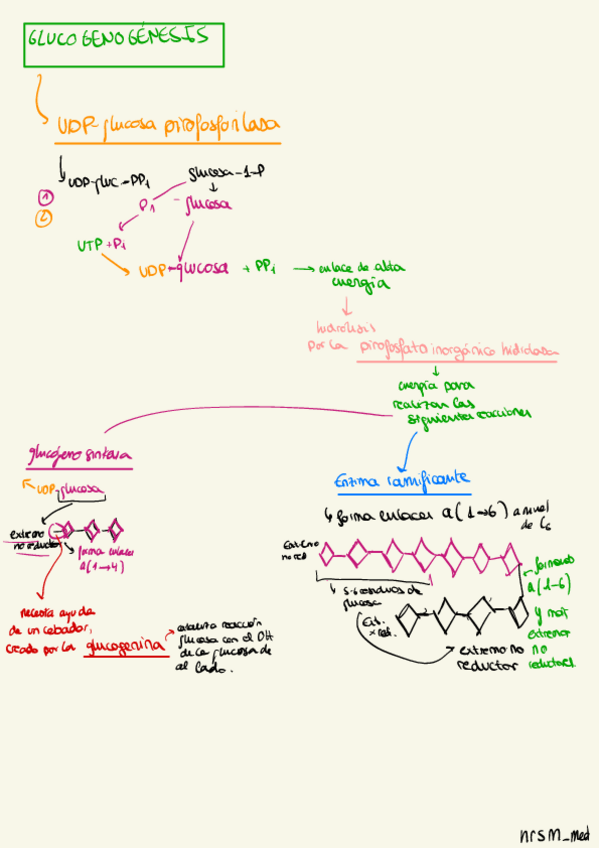 GLUCOGENOGÉNESIS
UDP-glucosa pirofosforilasa
UDP-gluc-PPi
glucosa-1-P
1
2
Pi - glucosa
UTP + Pi
UDP-glucosa + PPi → enlace de alta
energía
hidrólisis
por la pirofosfato inorgánico hidrolasa
energía para
realizar las
siguientes reacciones
glucógeno sintasa
UDP-glucosa
extremo
no reductor
forma enlaces
α(1→4)
necesita ayuda
de un cebador,
creado por la glucogenina
reacción
glucosa con el OH
de la glucosa de
al lado.
Enzima ramificante
forma enlaces α(1→6) a nivel
de C6
Extremo
no red
residuos de
glucosa
Ext.
red.
extremo no
reductor
formamos
α(1-6)
y más
extremos
no
reductores
nrsm_med